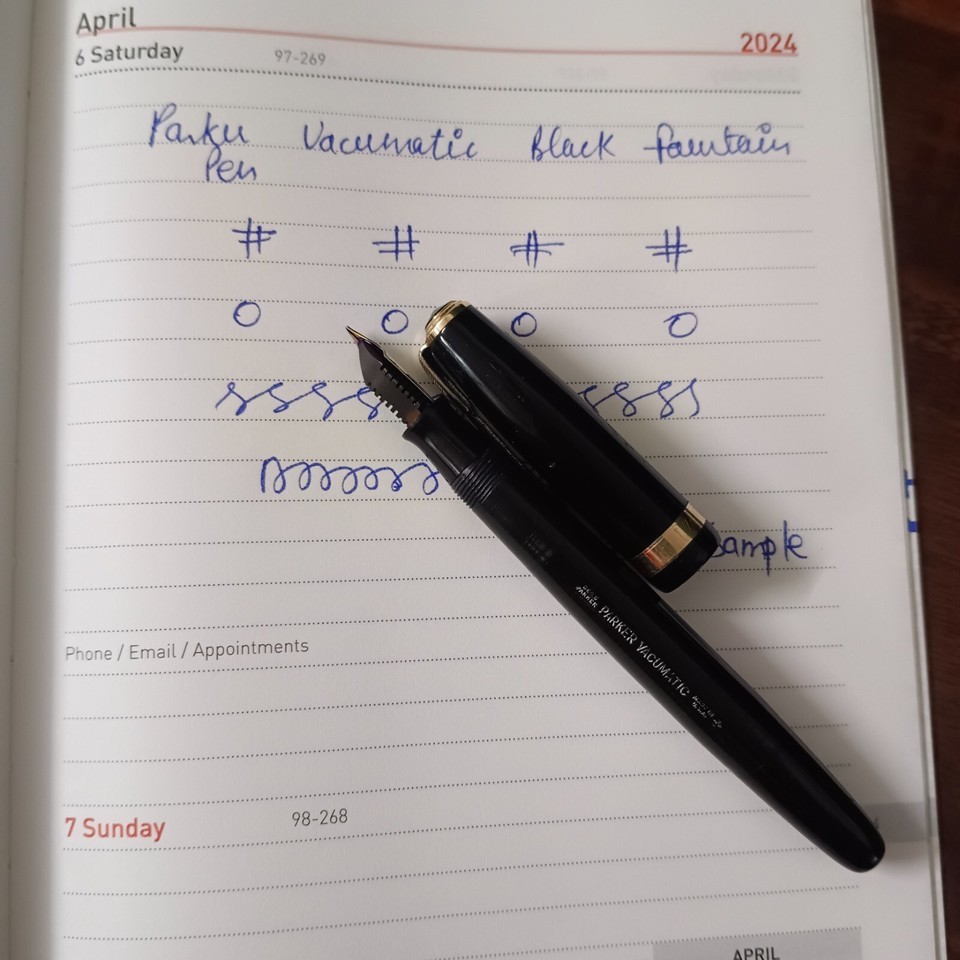 April
2024
6 Saturday 97-269
Parker Vacumatic Black fountain
Pen
# # # #
O O O O
ssss ssss
ample
PARKER VACUMATIC
PARKER
Phone / Email / Appointments
7 Sunday 98-268
APRIL